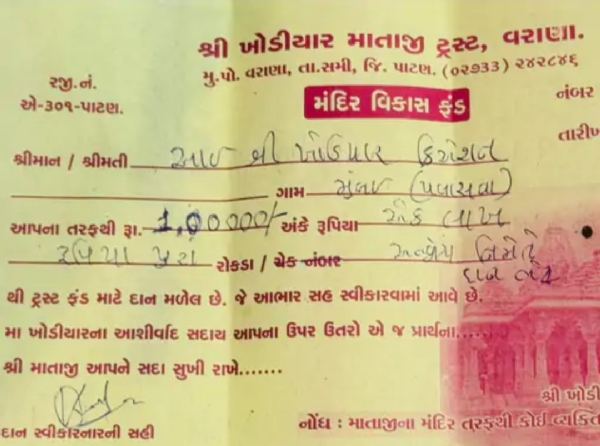 શ્રી ખોડીયાર માતાજી ટ્રસ્ટ, વરાણા.
મુ.પો. વરાણા, તા.સમી, જિ. પાટણ. (૦૨૭૩૩) ૨૪૨૮૪૬
રજી.નં.
એ-૩૦૧-પાટણ.
મંદિર વિકાસ ફંડ
નંબર
તારીખ
શ્રીમાન / શ્રીમતી આઈ શ્રી ખોડિયાર ક્રિએશન
ગામ મુંબઈ (પલાસવા)
આપના તરફથી રૂા. 1,00000/- અંકે રૂપિયા એક લાખ
રૂપિયા પુરા રોકડા / ચેક નંબર નિમિત્તે
દાન ભેટ
થી ટ્રસ્ટ ફંડ માટે દાન મળેલ છે. જે આભાર સહ સ્વીકારવામાં આવે છે.
મા ખોડીયારના આશીર્વાદ સદાય આપના ઉપર ઉતરો એ જ પ્રાર્થના......
શ્રી માતાજી આપને સદા સુખી રાખે.......
શ્રી ખોડી
દાન સ્વીકારનારની સહી
નોંધ : માતાજીના મંદિર તરફથી કોઈ વ્યક્તિ